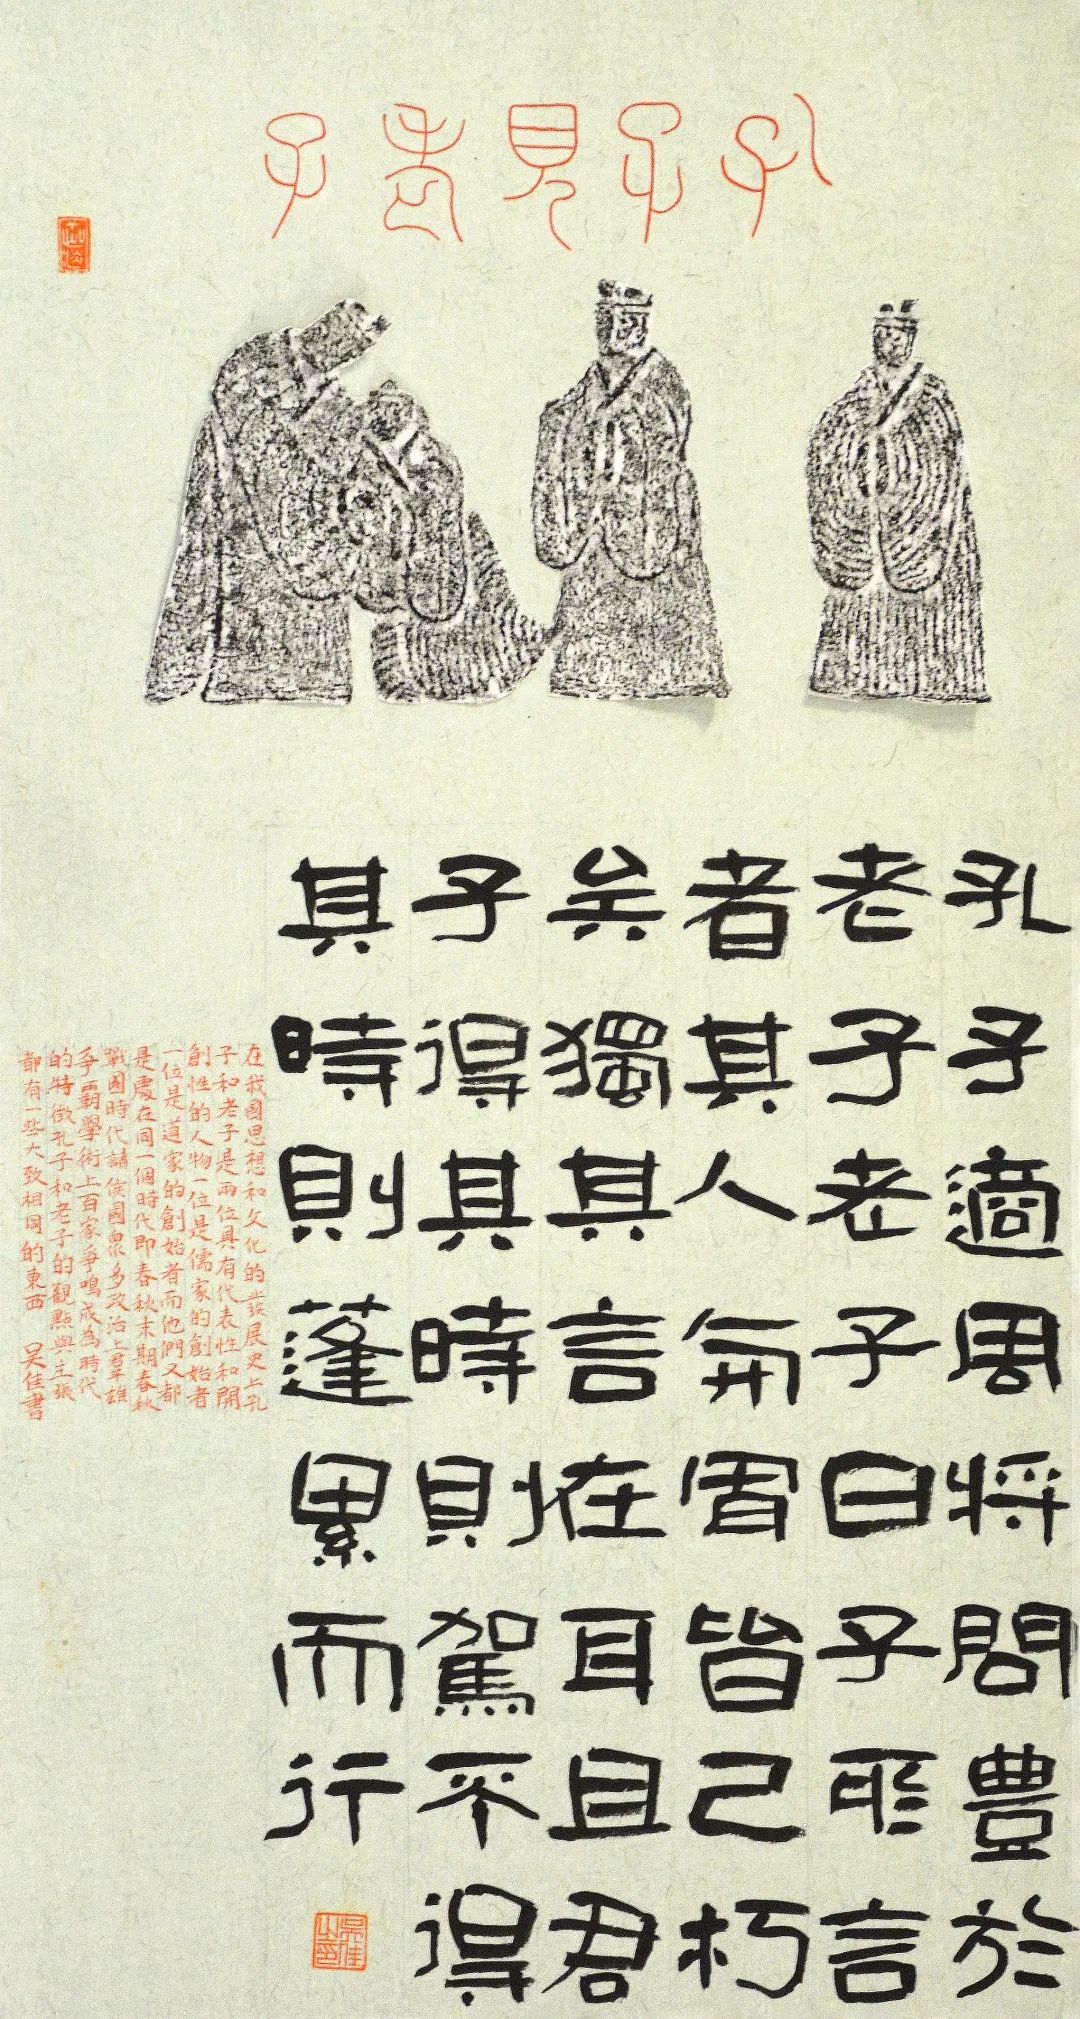 孔子見老子
孔子適周将問豊於
老子老子曰子所言
者其人與骨皆已朽
矣獨其言在耳且君
子得其時則駕不得
其時則蓬累而行
在我國思想和文化的發展史上孔
子和老子是兩位具有代表性和開
創性的人物一位是儒家的創始者
一位是道家的創始者而他們又都
是處在同一個時代即春秋末期春秋
戰國時代諸侯國眾多政治上羣雄
爭霸學術上百家爭鳴成為時代
的特徵孔子和老子的觀點與主張
都有一些大致相同的東西 吳佳書
吳佳之印